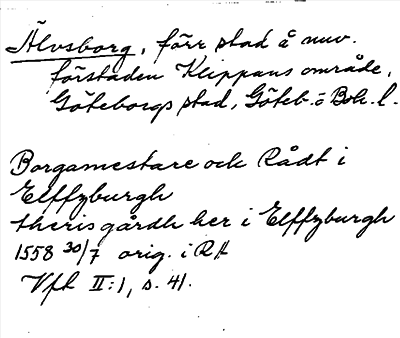 Älvsborg, förr stad å nuv.
förstaden Klippans område,
Göteborgs stad, Göteb. o Boh. l.
Borgamestare och Rådt i
Elffzburgh
theris gårdh her i Elffzburgh
1558 30/7 orig. i RA
Vft II:1, s. 41.